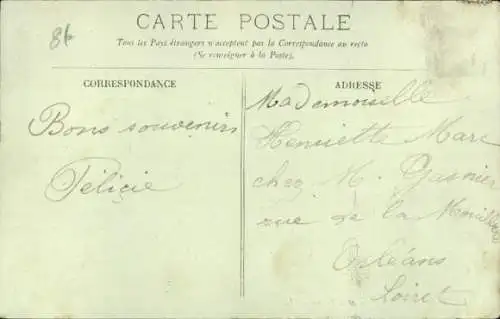 86
CARTE POSTALE
Tous les Pays étrangers n'acceptent pas la Correspondance au recto
(Se renseigner à la Poste).
CORRESPONDANCE
Bons souvenirs
Félicie
ADRESSE
Mademoiselle
Henriette Marc
chez M. Gasnier
rue de la
Orléans
Loiret